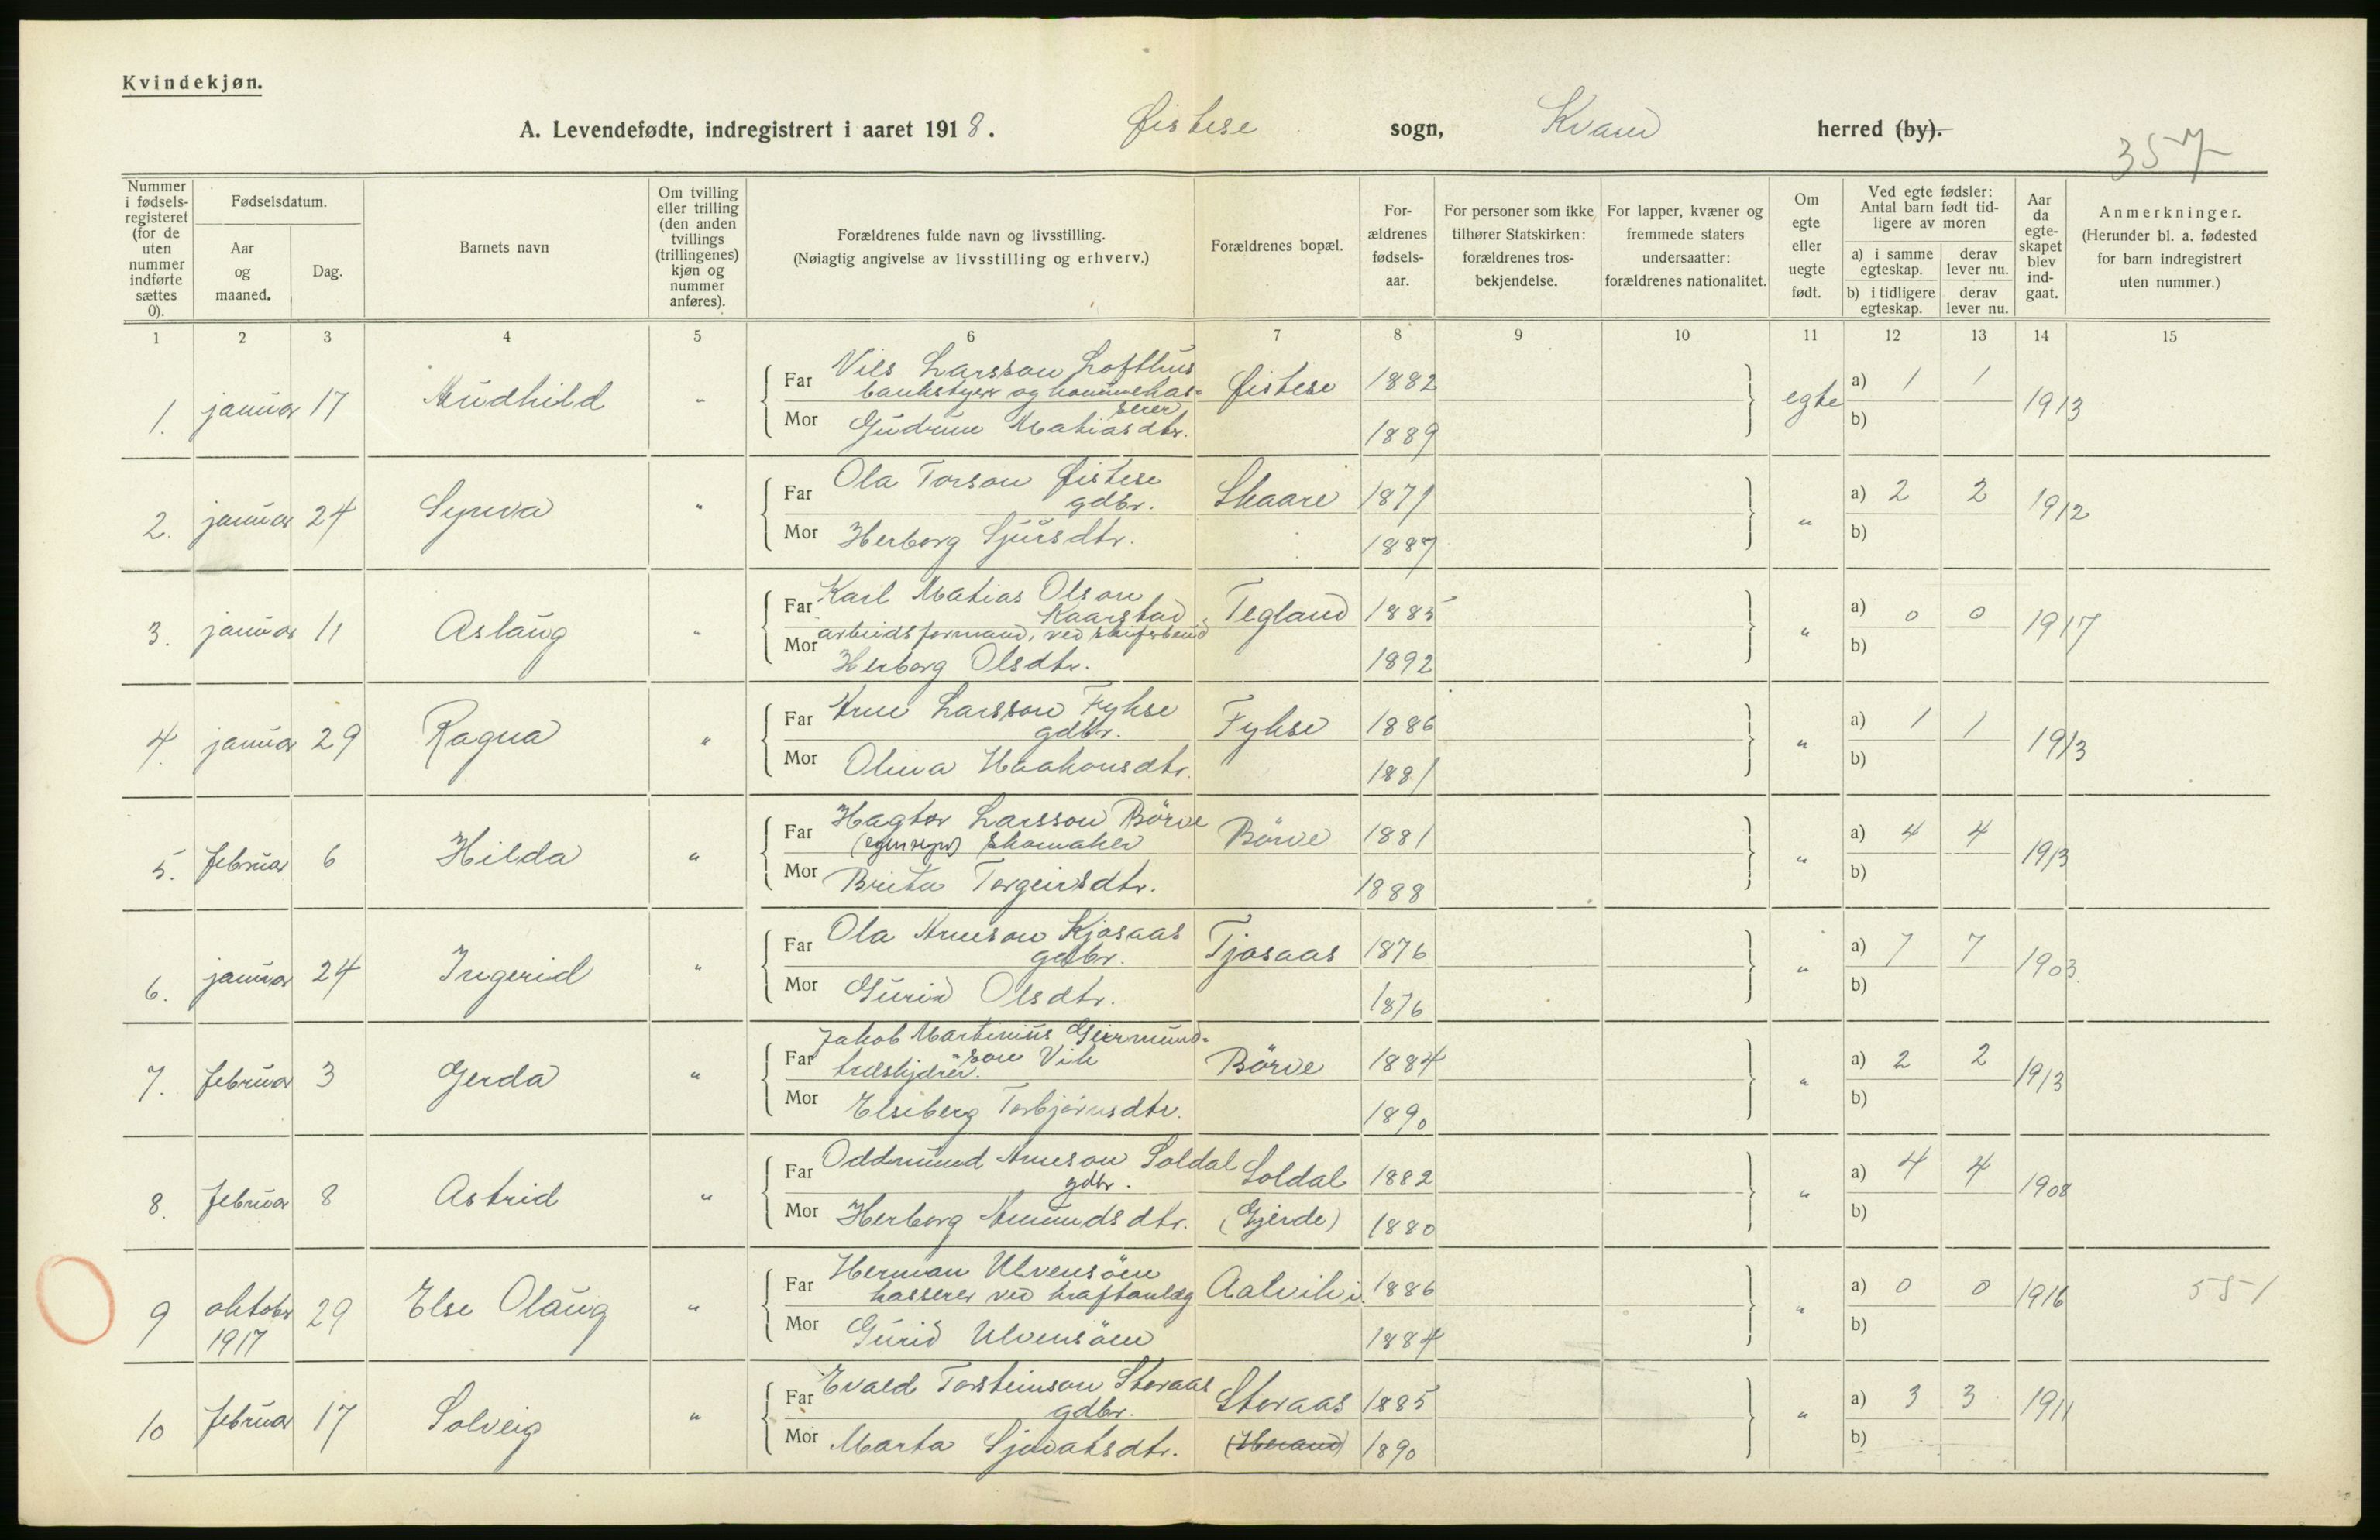 Kvindekjøn.
A. Levendefødte, indregistrert i aaret 1918. Øistese sogn, Kvam herred (by).
357
Nummer i fødselsregisteret (for de uten nummer indførte sættes 0).
Fødselsdatum.
Aar og maaned.
Dag.
Barnets navn
Om tvilling eller trilling (den anden tvillings (trillingenes) kjøn og nummer anføres).
Forældrenes fulde navn og livsstilling.
(Nøiagtig angivelse av livsstilling og erhverv.)
Forældrenes bopæl.
Forældrenes fødselsaar.
For personer som ikke tilhører Statskirken: forældrenes trosbekjendelse.
For lapper, kvæner og fremmede staters undersaatter: forældrenes nationalitet.
Om egte eller uegte født.
Ved egte fødsler: Antal barn født tidligere av moren
a) i samme egteskap. derav lever nu.
b) i tidligere egteskap. derav lever nu.
Aar da egteskapet blev indgaat.
Anmerkninger.
(Herunder bl. a. fødested for barn indregistrert uten nummer.)
1 2 3 4 5 6 7 8 9 10 11 12 13 14 15
1. januar 17 Audhild " Far Nils Larsson Lofthus Øistese 1882 egte a) 1 1 1913
bankstyrer og kommunekas=
serer
Mor Gudrun Matiasdtr. 1889 b)
2. januar 24 Synva " Far Ola Torson Øistese Skaare 1871 " a) 2 2 1912
gdbr.
Mor Herborg Sjursdtr. 1887 b)
3. januar 11 Aslaug " Far Karl Matias Olson Tegland 1885 " a) 0 0 1917
Kaarstad
arbeidsformand, ved skiferbrud
Mor Herborg Olsdtr. 1892 b)
4. januar 29 Ragna " Far Arne Larsson Fykse Fykse 1886 " a) 1 1 1913
gdbr.
Mor Olina Haakonsdtr. 1881 b)
5. februar 6 Hilda " Far Hagtor Larsson Börve Börve 1881 " a) 4 4 1913
skomaker
Mor Brita Torgeirsdtr. 1888 b)
6. januar 24 Ingerid " Far Ola Arneson Kjosaas Tjosaas 1876 " a) 7 7 1903
gdbr.
Mor Gurid Olsdtr. 1876 b)
7. februar 3 Gerda " Far Jakob Martinius Geirmund=
son Vik Börve 1884 " a) 2 2 1913
treskjærer.
Mor Elsiberg Torbjörnsdtr. 1890 b)
8. februar 8 Astrid " Far Oddmund Arneson Soldal Soldal 1882 " a) 4 4 1908
gdbr.
Mor Herborg Amundsdtr. (Gjerde) 1880 b)
9 oktober 29 Else Olaug " Far Herman Ulvensöen Aalvik i. 1886 " a) 0 0 1916 551
1917 kasserer ved kraftanlæg
Mor Gurid Ulvensöen 1884 b)
10 februar 17 Solveig " Far Evald Torsteinson Storaas Storaas 1885 " a) 3 3 1911
gdbr.
Mor Marta Sjovatsdtr. (Herand) 1890 b)